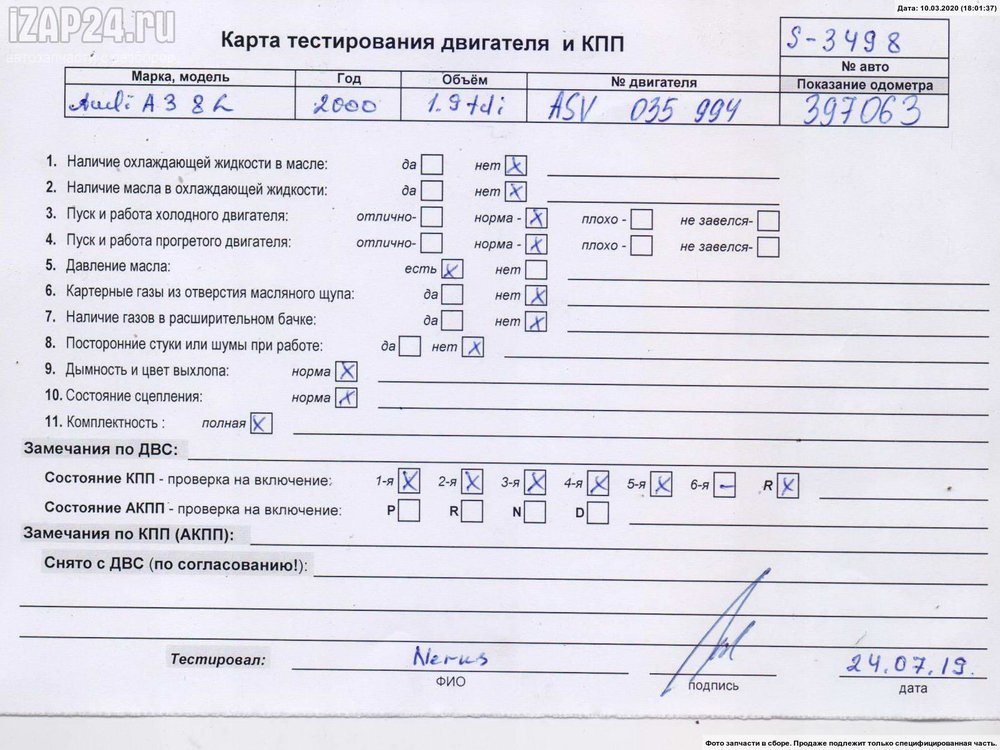 Дата: 10.03.2020 (18:01:37)
iZAP24.ru
Карта тестирования двигателя и КПП
S-3498
№ авто
Марка, модель Год Объём № двигателя Показание одометра
Audi A3 8L 2000 1.9 tdi ASV 035 994 397063
1. Наличие охлаждающей жидкости в масле: да нет X
2. Наличие масла в охлаждающей жидкости: да нет X
3. Пуск и работа холодного двигателя: отлично- норма - X плохо - не завелся-
4. Пуск и работа прогретого двигателя: отлично- норма - X плохо - не завелся-
5. Давление масла: есть X нет
6. Картерные газы из отверстия масляного щупа: да нет X
7. Наличие газов в расширительном бачке: да нет X
8. Посторонние стуки или шумы при работе: да нет X
9. Дымность и цвет выхлопа: норма X
10. Состояние сцепления: норма X
11. Комплектность : полная X
Замечания по ДВС:
Состояние КПП - проверка на включение: 1-я X 2-я X 3-я X 4-я X 5-я X 6-я – R X
Состояние АКПП - проверка на включение: P R N D
Замечания по КПП (АКПП):
Снято с ДВС (по согласованию!):
Тестировал: Nerus 24.07.19.
ФИО подпись дата
Фото запчасти в сборе. Продаже подлежит только специфицированная часть.